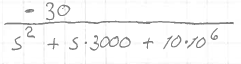 - 30
s² + s·3000 + 10·10⁶